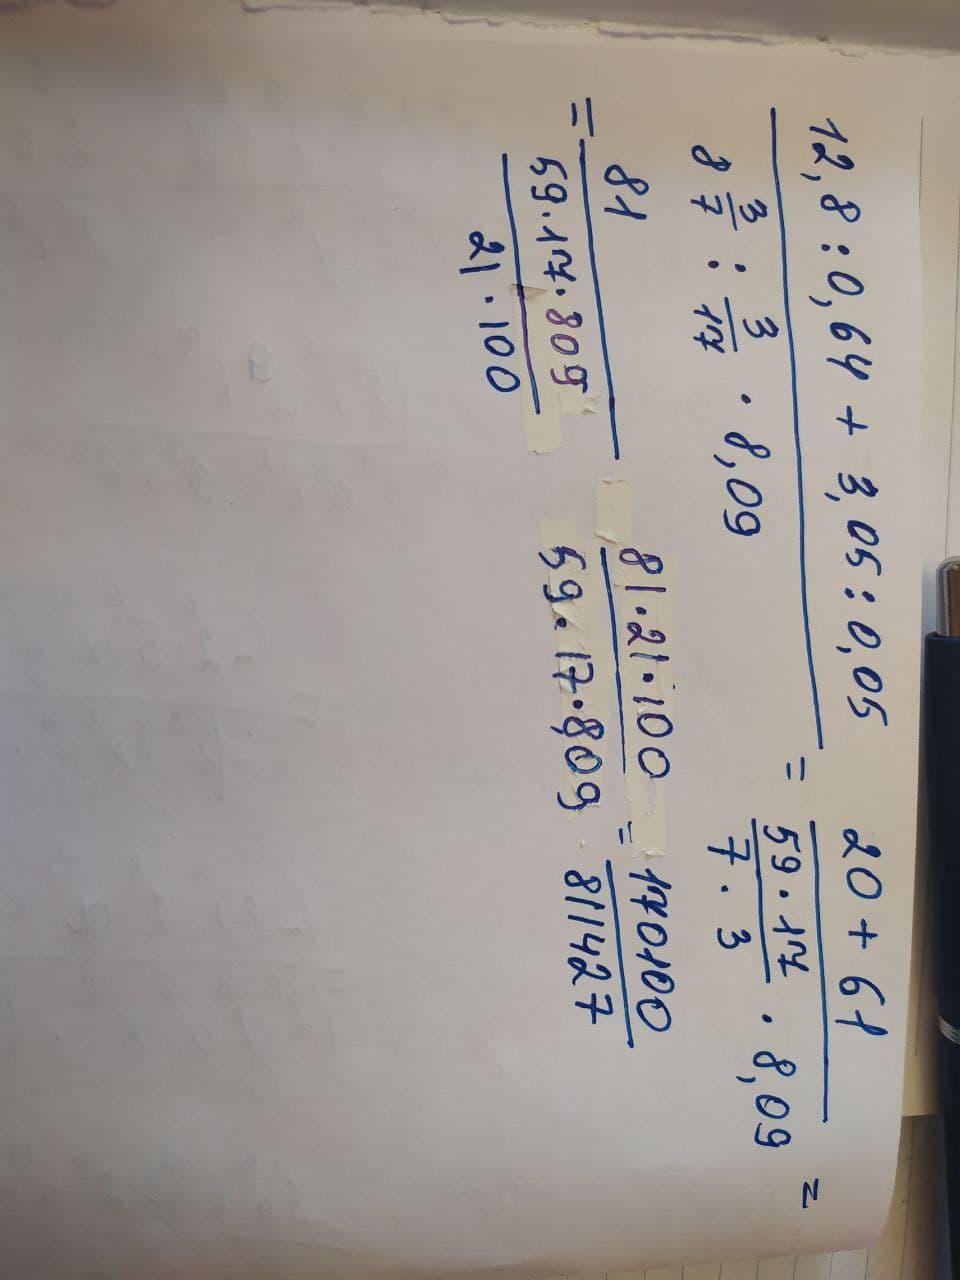 12,8 : 0,64 + 3,05 : 0,05 / 8 3/7 : 3/17 · 8,09 = 20 + 61 / 59 · 17 / 7 · 3 · 8,09 =
= 81 / 59 · 17 · 809 / 21 · 100 81 · 21 · 100 / 59 · 17 · 809 = 170100 / 811427